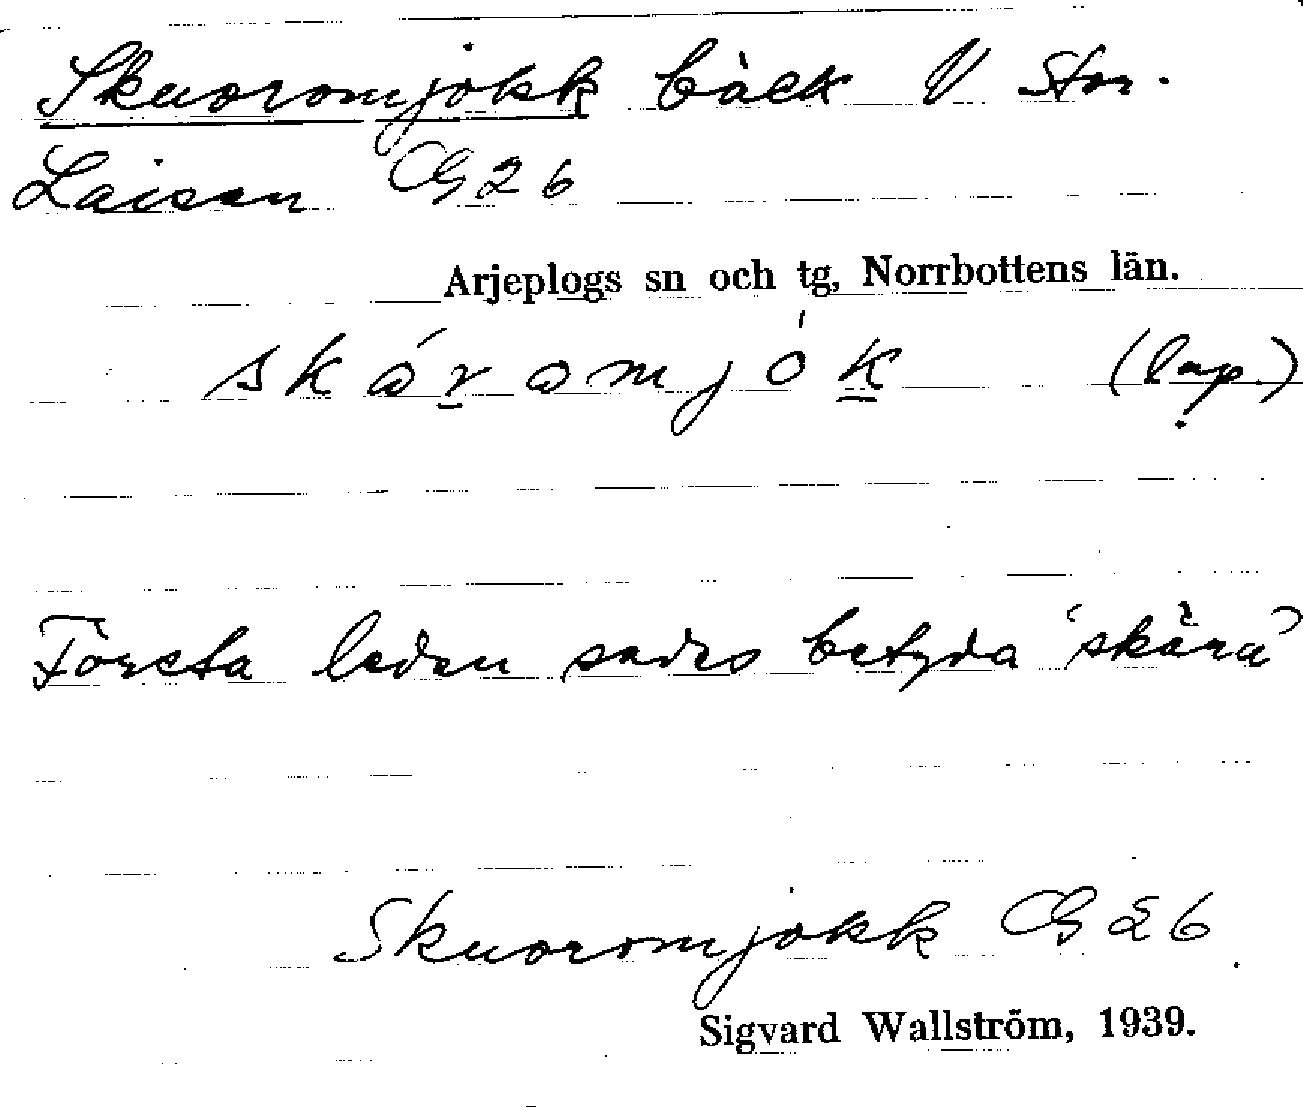 Skuoromjokk bäck V Stor-
Laisan CG 26
Arjeplogs sn och tg, Norrbottens län.
skåromjók (lap.)
Första leden sades betyda 'skära'
Skuoromjokk CG 26
Sigvard Wallström, 1939.